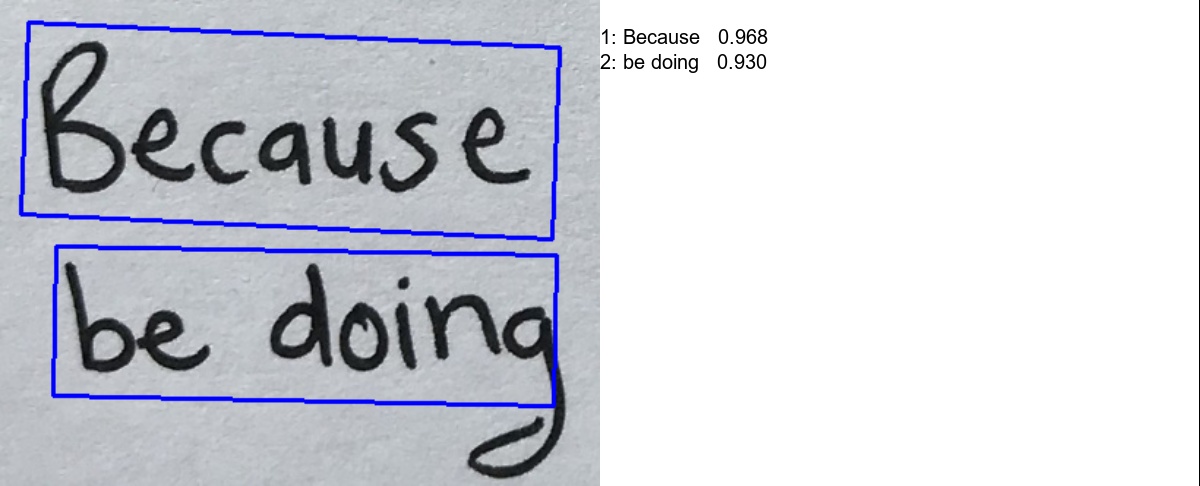 Because
be doing
1: Because 0.968
2: be doing 0.930